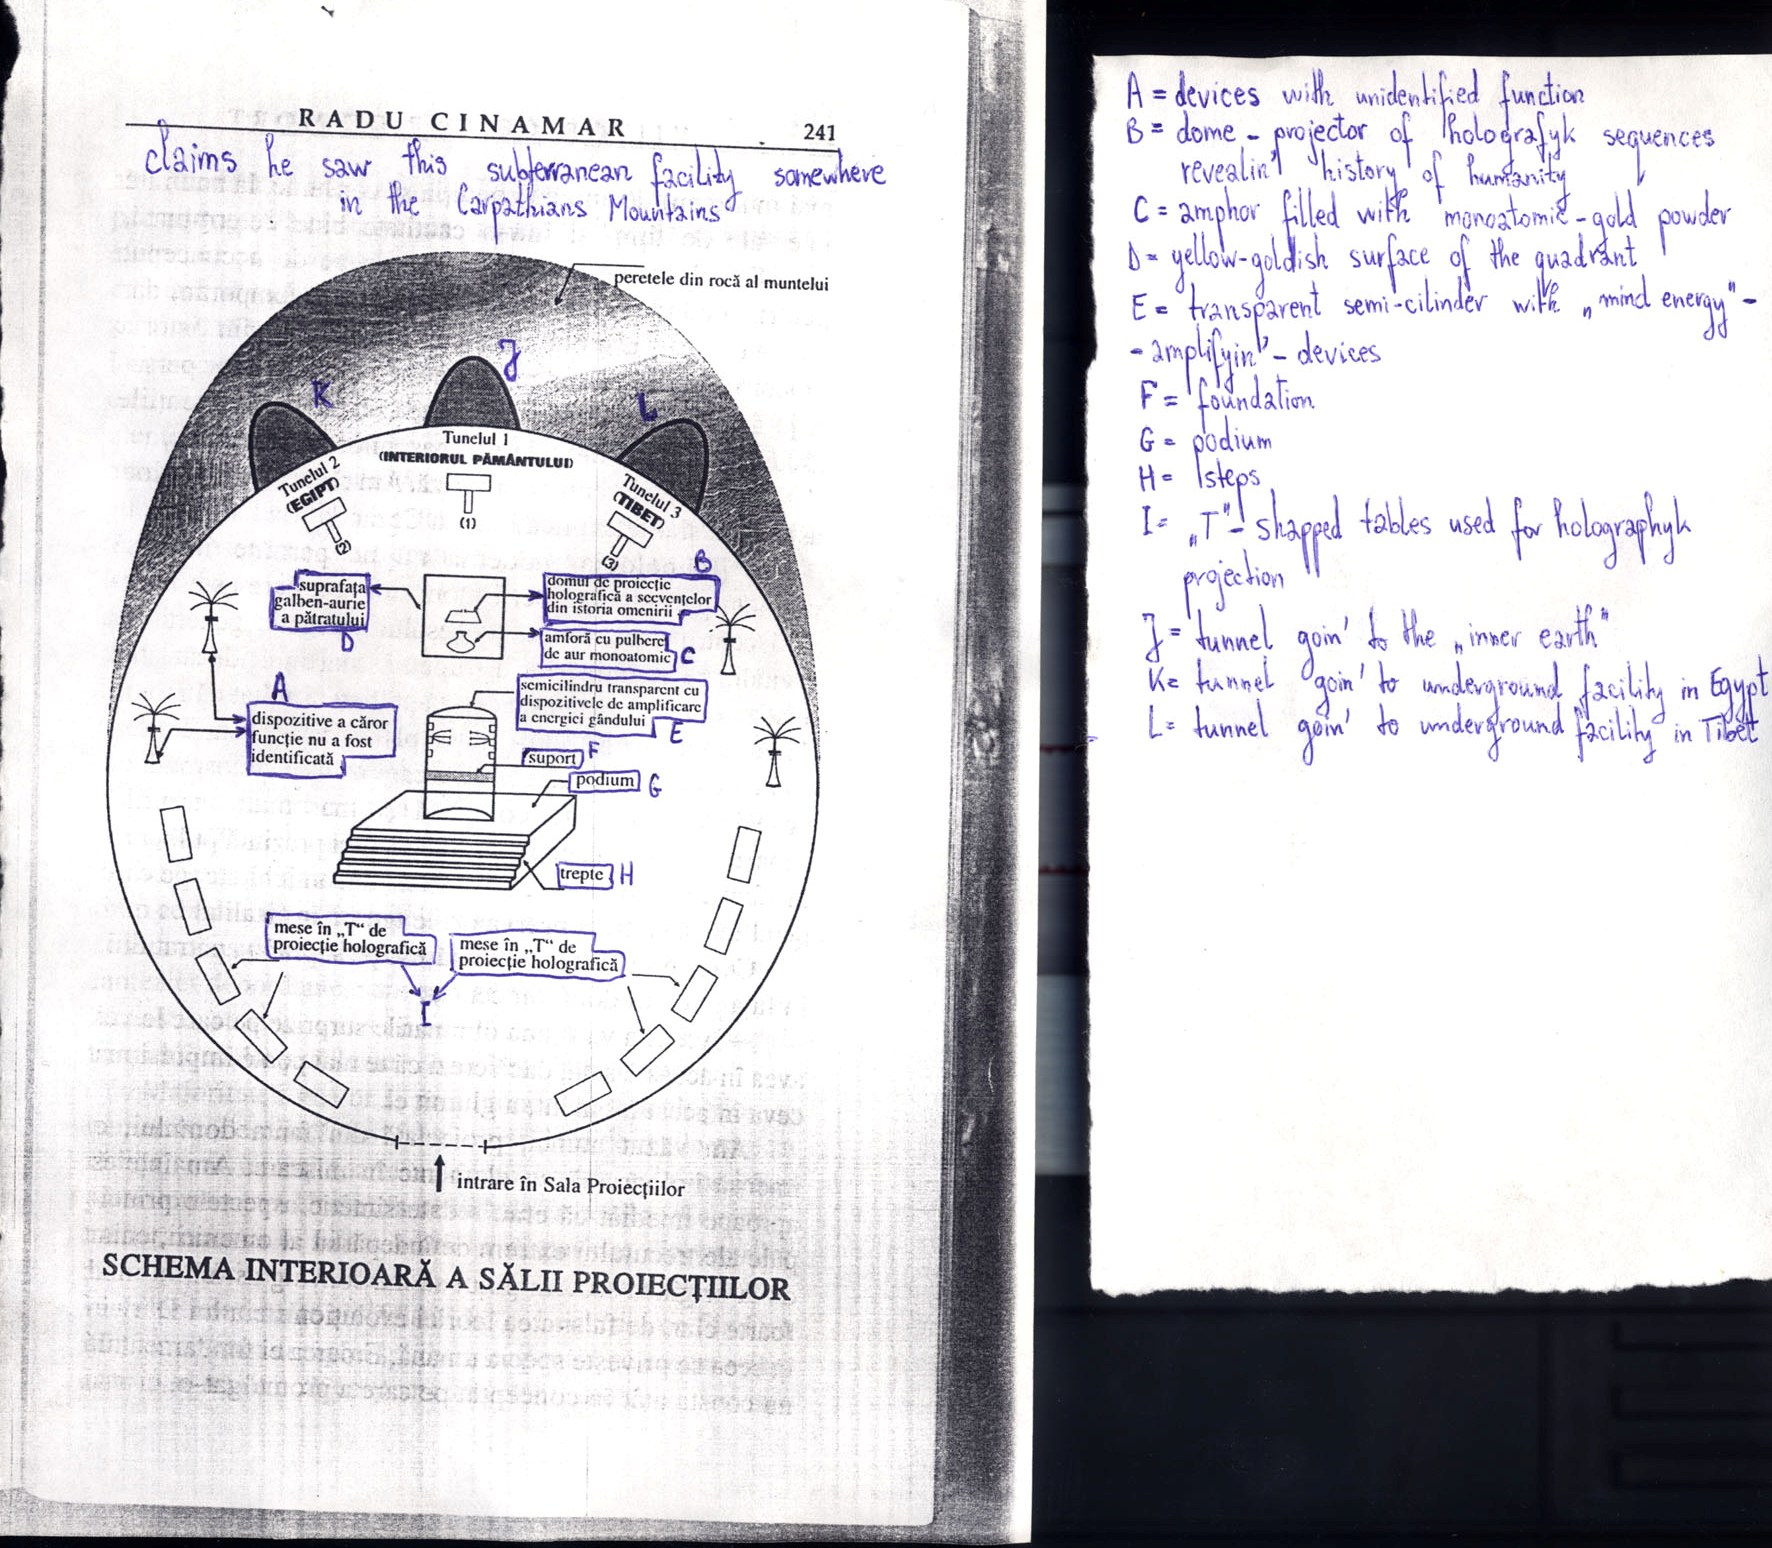 RADU CINAMAR 241
claims he saw this subterranean facility somewhere
in the Carpathians Mountains
peretele din rocă al muntelui
J
K
L
Tunelul 1
(INTERIORUL PĂMÂNTULUI)
(1)
Tunelul 2
(EGIPT)
(2)
Tunelul 3
(TIBET)
(3)
B
suprafața
galben-aurie
a pătratului
D
domul de proiecție
holografică a secvențelor
din istoria omenirii
amforă cu pulbere
de aur monoatomic
C
A
dispozitive a căror
funcție nu a fost
identificată
semicilindru transparent cu
dispozitivele de amplificare
a energiei gândului
E
suport
F
podium
G
trepte
H
mese în „T“ de
proiecție holografică
mese în „T“ de
proiecție holografică
I
intrare în Sala Proiecțiilor
SCHEMA INTERIOARĂ A SĂLII PROIECȚIILOR
A = devices with unidentified function
B = dome - projector of holografyk sequences
revealin' history of humanity
C = amphor filled with monoatomic-gold powder
D = yellow-goldish surface of the quadrant
E = transparent semi-cilinder with „mind energy" -
- amplifyin' - devices
F = foundation
G = podium
H = steps
I = „T" - shapped tables used for holographyk
projection
J = tunnel goin' to the „inner earth"
K = tunnel goin' to underground facility in Egypt
L = tunnel goin' to underground facility in Tibet